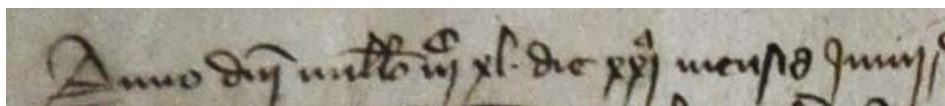 Anno dñi mill̃o iijᶜ xl. die xxjᵃ mensis Junij